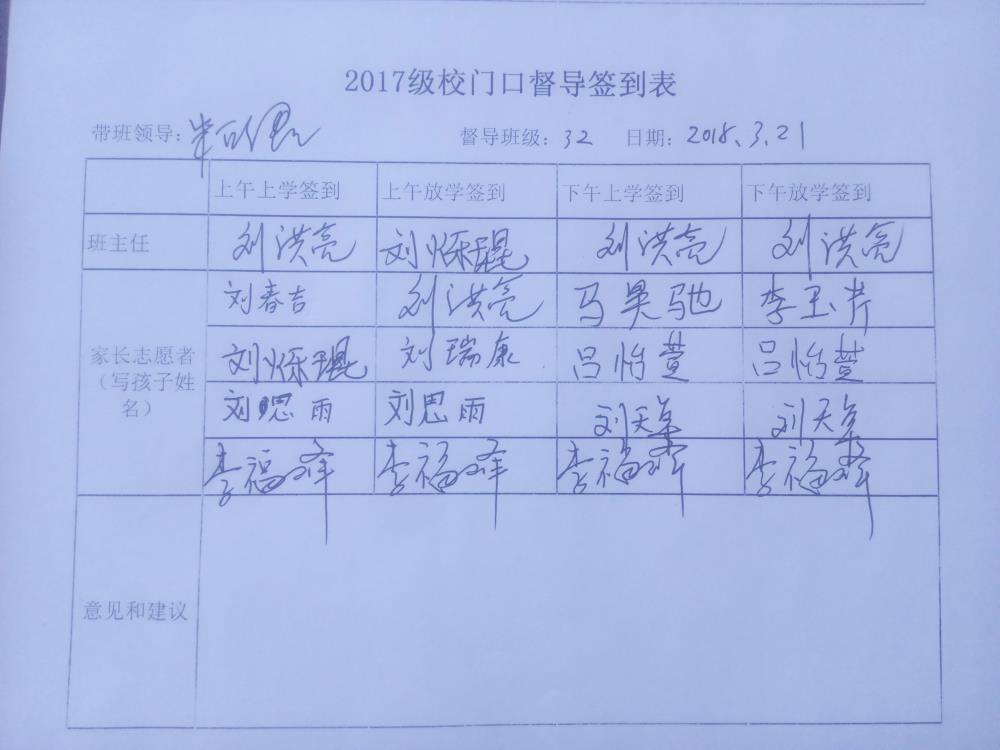 2017级校门口督导签到表
带班领导： 督导班级：32 日期：2018.3.21
上午上学签到 上午放学签到 下午上学签到 下午放学签到
班主任 刘洪亮 刘烁琨 刘洪亮 刘洪亮
刘春吉 刘洪亮 马昊驰 李玉芹
家长志愿者（写孩子姓名） 刘烁琨 刘瑞康 吕怡萱 吕怡萱
刘思雨 刘思雨 刘天 刘天
李福 李福 李福 李福
意见和建议